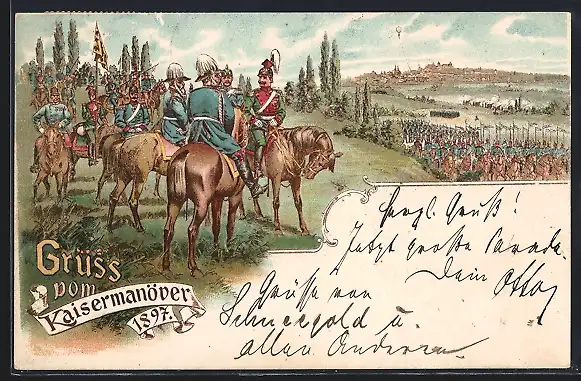 Grüss
vom
Kaisermanöver
1897.
Herzl. Gruß!
Jetzt große Parade.
Dein Otto
Grüsse von
Schneegold u.
allen Anderen.